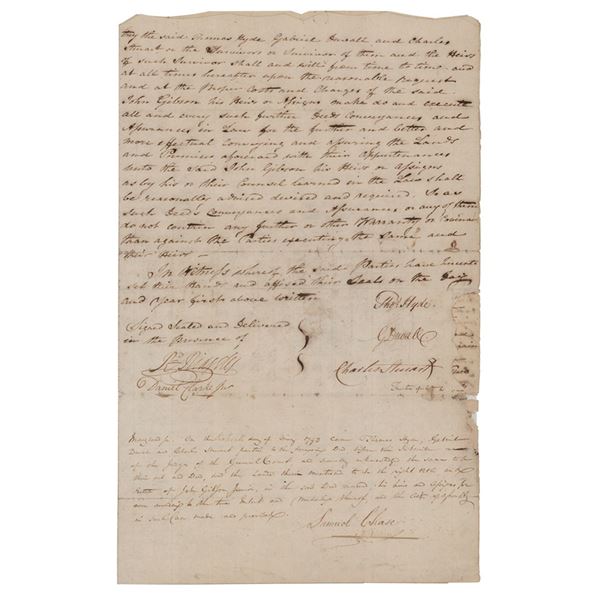 they the said Thomas Hyde Gabriel Duvall and Charles
Stuart or the Survivors or Survivor of them and the Heirs
of such Survivor shall and will from time to time and
at all times hereafter upon the reasonable Request
and at the Proper Costs and Charges of the said
John Gibson his Heirs or Assigns make do and execute
all and every such further Deeds Conveyances and
Assurances in Law for the further and better and
more effectual Conveying and assuring the Lands
and Premises aforesaid with their Appurtenances
unto the said John Gibson his Heirs or Assigns
as by his or their Counsel learned in the Law shall
be reasonably advised devised and required. So as
such Deeds Conveyances and Assurances or any of them
do not contain any further or other Warranty or
than against the Parties executing the Same and
their Heirs —
In Witness whereof the said Parties have hereunto
set their Hands and affixed their Seals on the Day
and Year first above written
Thos. Hyde.
Signed Sealed and Delivered
in the Presence of
G Duvall
Charles Steuart
Daniel Clarke Jr
Maryland sc. On the day of May 1793 Came Thomas Hyde, Gabriel
Duvall and Charles Steuart parties to the foregoing Deed before the Subscriber
of the Judges of the General Court and severally acknowledge the same to be
their act and Deed, and the Lands therein mentioned to be the right and
Estate of John Gibson Junior, in the said Deed named his heirs and assigns for
ever according to the true intent and Meaning thereof and the Acts of Assembly
in such Case made and provided.
Samuel Chase